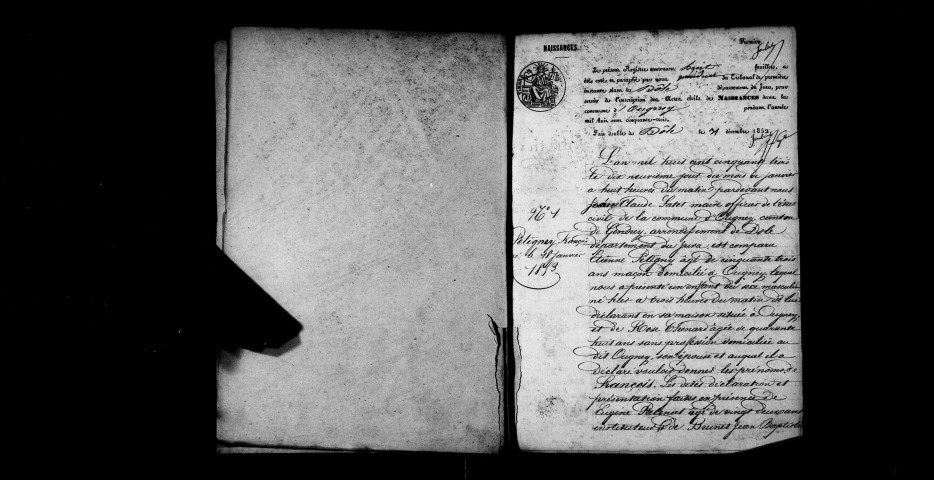 NAISSANCES.
Premier
Le présent Registre contenant huit feuillets, a
été coté et paraphé par nous président du Tribunal de première
instance séant à Dôle département du Jura, pour
servir à l'inscription des Actes civils de NAISSANCES dans la
commune d'Ougney pendant l'année
mil huit cent cinquante-trois.
Fait double à Dôle le 31 décembre 1852
N° 1
Pétigney François
né le 18 janvier
1853
L'an mil huit cent cinquante trois
le dix neuvième jour du mois de janvier
a huit heures du matin pardevant nous
Jean Claude maire officier de l'état
civil de la commune d'Ougney canton
de Gendrey, arrondissement de Dole
département du Jura, est comparu
Etienne Pétigney âgé de cinquante trois
ans maçon domicilié à Ougney lequel
nous a présenté un enfant du sexe masculin
né hier a trois heures du matin de lui
déclarant en sa maison située à Ougney
et de Rose Thenard agée de quarante
huit ans sans profession domiciliée au
dit Ougney, son épouse et auquel il a
déclaré vouloir donner les prénoms de
François. Les dites déclaration et
présentation faites en présence de
Eugène agé de vingt deux ans
instituteur & de Brunet Jean Baptiste